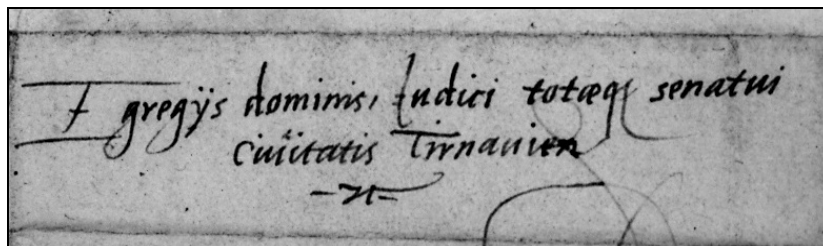 Egregijs dominis, Iudici totæq; senatui
Ciuitatis Tirnauien